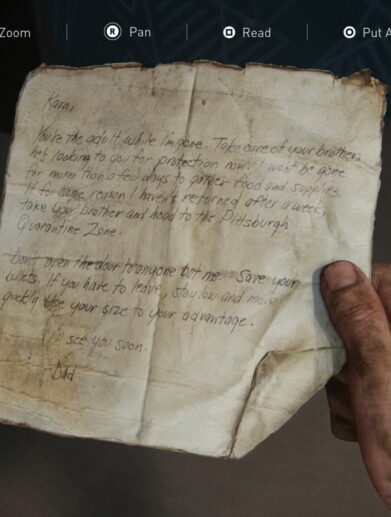 Zoom R Pan Read Put A
Kara,
You're the adult while I'm gone. Take care of your brother,
he's looking to you for protection now. I won't be gone
for more than a few days to gather food and supplies.
If for some reason I haven't returned after a week,
take your brother and head to the Pittsburgh
Quarantine Zone.
Don't open the door to anyone but me. Save your
bullets. If you have to leave, stay low and move
quickly. Use your size to your advantage.
I'll see you soon.
Dad